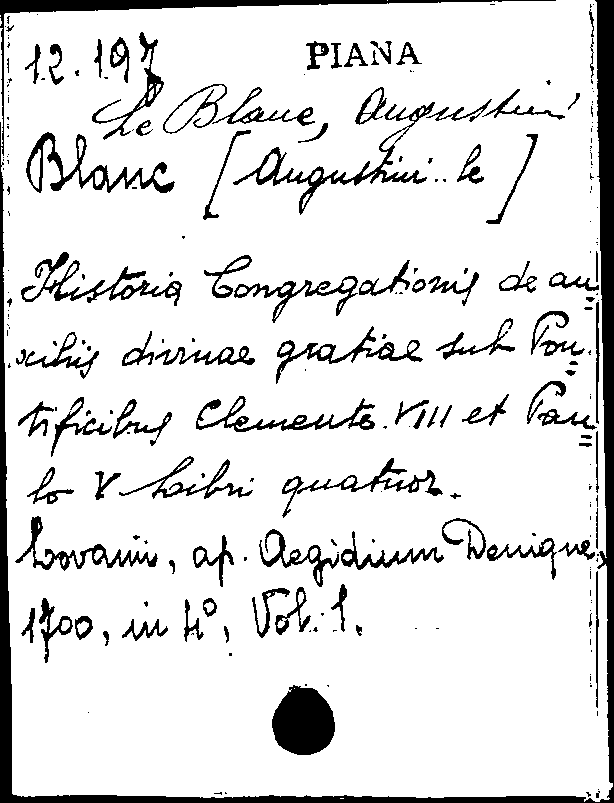 12.197 PIANA
Le Blanc, Augustini
Blanc [Augustini.. le]
Historia Congregationis de au=
xiliis divinae gratiae sub Pon=
tificibus Clemente VIII et Pau=
lo V Libri quatuor.
Lovanii, ap. Aegidium Denique,
1700, in 4°, Vol. 1.